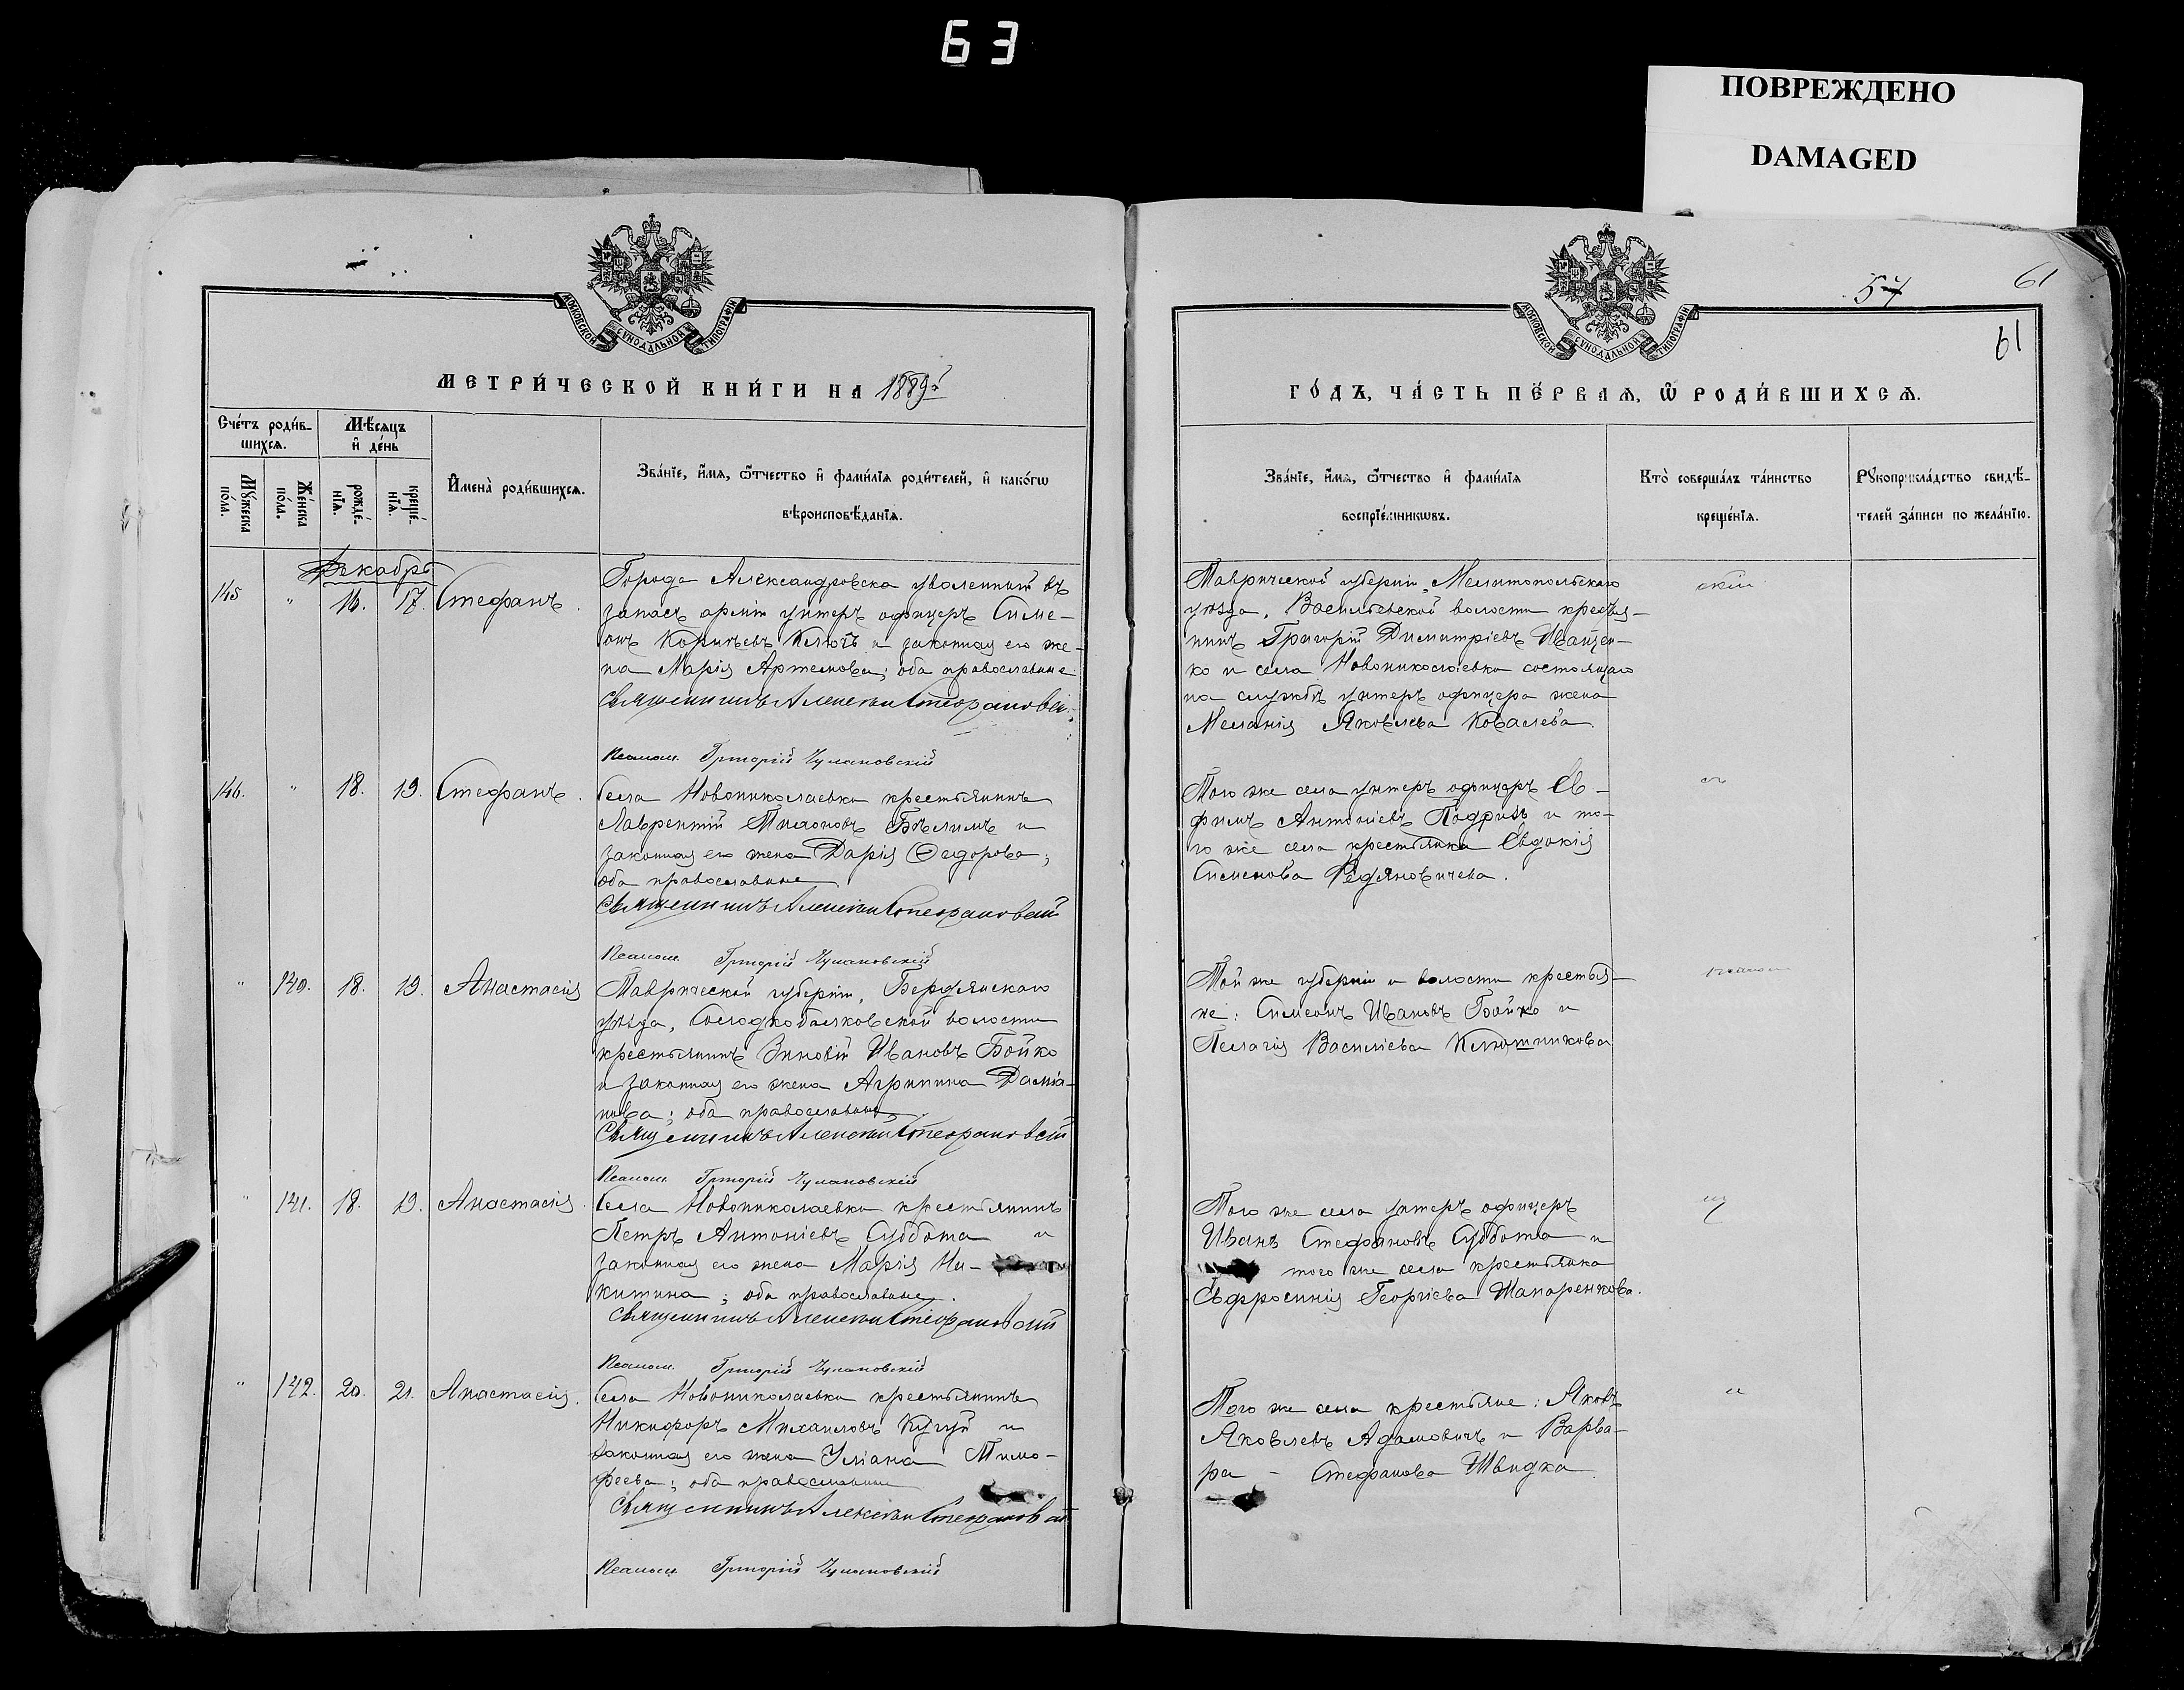 63
ПОВРЕЖДЕНО
DAMAGED
МОСКОВСКОЙ СУНОДАЛЬНОЙ ТИПОГРАФІИ
МОСКОВСКОЙ СУНОДАЛЬНОЙ ТИПОГРАФІИ
57
61
61
МЕТРИ́ЧЕСКОЙ КНИ́ГИ НА 1889й
ГО́ДЪ, ЧА́СТЬ ПЕ́РВАѦ, Ѡ҆ РОДИ́ВШИХСѦ.
Сче́тъ роди́в-
шихсѧ.
Мꙋ́жеска по́ла.
Же́нска по́ла.
Мѣ́сѧцъ
и҆ де́нь
рожде́-
нїѧ.
креще́-
нїѧ.
И҆мена̀ роди́вшихсѧ.
Зва́нїе, и҆́мѧ, ѻ҆́тчество и҆ фами́лїѧ роди́телей, и҆ како́гѡ
вѣроисповѣ́данїѧ.
Зва́нїе, и҆́мѧ, ѻ҆́тчество и҆ фами́лїѧ
воспрїе́мникѡвъ.
Кто̀ соверша́лъ та́инство
креще́нїѧ.
Рꙋкоприкла́дство свидѣ́-
телей за́писи по жела́нїю.
Декабрь
145 " 16. 17. Стефанъ.
Города Александровска уволенный въ
запасъ арміи унтеръ офицеръ Симе-
онъ Корнѣевъ Ключъ и законная его же-
на Марія Артемова; оба православные
Священникъ Алексѣй Стефановскій
Псалом. Григорій Чулановскій
Таврической губерніи, Мелитопольскаго
уѣзда, Васильевской волости крестья-
нинъ Григорій Димитріевъ Иващен-
ко и села Новониколаевки состоящаго
на службѣ унтеръ офицера жена
Меланія Яковлева Ковалева.
скій
146. " 18. 19. Стефанъ.
Села Новониколаевки крестьянинъ
Лаврентій Тихоновъ Бѣлимъ и
законная его жена Дарія Ѳеодорова;
оба православные
Священникъ Алексѣй Стефановскій
Псалом. Григорій Чулановскій
Того же села унтеръ офицеръ Ев-
фимъ Антоніевъ и то-
го же села крестьянка Евдокія
Сименова Федяновичева.
" 140. 18. 19. Анастасія
Таврической губерніи, Бердянскаго
уѣзда, Солодкобалковской волости
крестьянинъ Зиновій Ивановъ Бойко
и законная его жена Агрипина Даміа-
нова; оба православные.
Священникъ Алексѣй Стефановскій
Псалом. Григорій Чулановскій
Той же губерніи и волости крестья-
не: Симеонъ Ивановъ Бойко и
Пелагія Василіева Клюшникова
" 141. 18. 19. Анастасія.
Села Новониколаевки крестьянинъ
Петръ Антоніевъ Суббота и
законная его жена Марія Ни-
китина; оба православные.
Священникъ Алексѣй Стефановскій
Псалом. Григорій Чулановскій
Того же села унтеръ офицеръ
Иванъ Стефановъ Суббота и
того же села крестьянка
Евфросинія Георгіева Шапоренкова.
" 142. 20. 21. Анастасія.
Села Новониколаевки крестьянинъ
Никифоръ Михаиловъ Кугуй и
законная его жена Уліана Тимо-
феева; оба православные
Священникъ Алексѣй Стефановскій
Псалом. Григорій Чулановскій
Того же села крестьяне: Яковъ
Яковлевъ Адамовичъ и Варва-
ра - Стефанова Швидка.